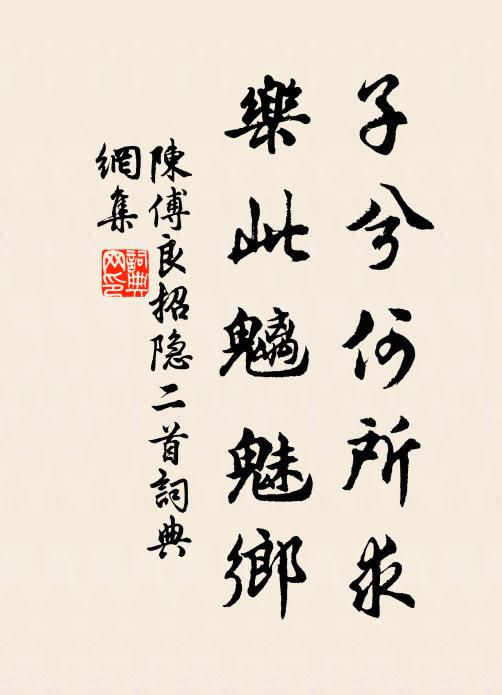 子兮何所求
樂此魑魅鄉
陳傅良招隐二首詞典
網集
詞典网印